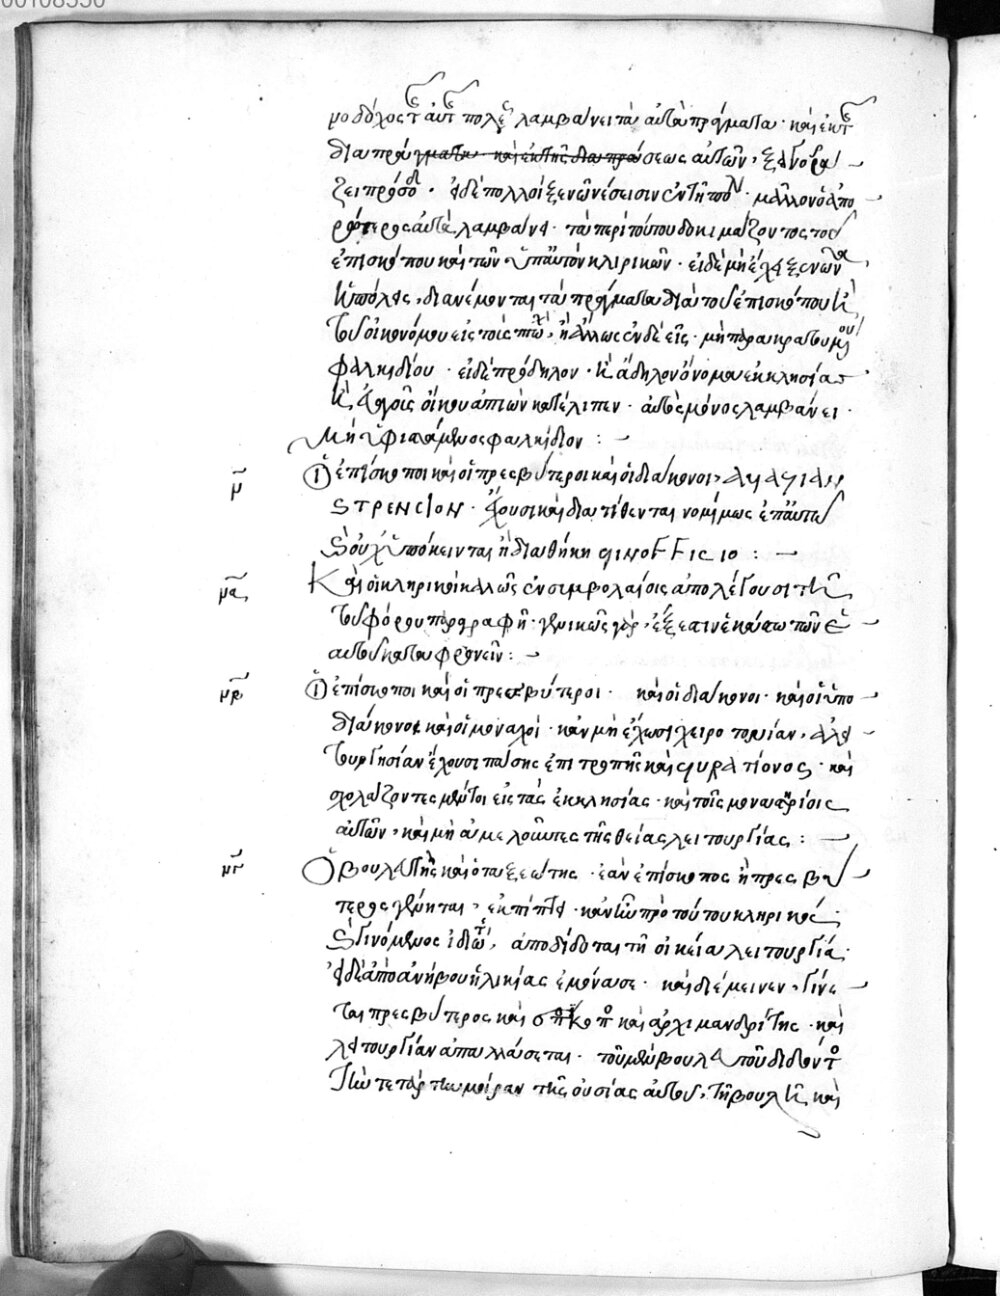 00108550
μοδόχος τῆς αὐτῆς πόλεως λαμβάνει τὰ αὐτὰ πράγματα · καὶ ἐκ τῆς
διαπράσεως αὐτῶν, ἐξαγορά
ζει πρόσοδον · εἰ δὲ πολλοὶ ξενῶνές εἰσιν ἐν τῇ πόλει · μᾶλλον ὁ ἀπο
ρώτερος αὐτὰ λαμβάνει · τὰ περὶ τούτου δοκιμάζοντος τοῦ
ἐπισκόπου καὶ τῶν ὑπ' αὐτὸν κληρικῶν · εἰ δὲ μὴ ἔχει ξενῶνα
ἡ πόλις, διανέμονται τὰ πράγματα διὰ τοῦ ἐπισκόπου καὶ
τοῦ οἰκονόμου εἰς τοὺς πτωχούς, ἢ ἄλλως ἐνδεεῖς · μὴ παρακρατουμένου
φαλκιδίου · εἰ δὲ πρόδηλον · καὶ ἄδηλον ὄνομα ἐκκλησίας
καὶ εὐαγοῦς οἴκου ἀπιὼν κατέλιπεν · αὐτὸς μόνος λαμβάνει ·
μὴ ὑφιστάμενος φαλκίδιον : —
μ Οἱ ἐπίσκοποι καὶ οἱ πρεσβύτεροι καὶ οἱ διάκονοι,
STPENCION · ἔχουσι καὶ διατίθενται νομίμως ἐπ' αὐτῷ
καὶ οὐχ ὑπόκειται ἡ διαθήκη qINOFFICIO : —
μα Καὶ οἱ κληρικοὶ καλῶς ἐν συμβολαίοις ἀπολέγουσι τῇ
τοῦ φόρου παραγραφῇ · γενικῶς γὰρ, ἔξεστιν ἑκάστῳ τῶν ἑ
αυτοῦ καταφρονεῖν : —
μβ Οἱ ἐπίσκοποι καὶ οἱ πρεσβύτεροι · καὶ οἱ διάκονοι · καὶ οἱ ὑπο
διάκονοι καὶ οἱ μοναχοί · κἂν μὴ ἔχωσι χειροτονίαν, ἀλει
τουργησίαν ἔχουσι πάσης ἐπιτροπῆς καὶ qυρατίονος · καὶ
σχολάζοντες μέντοι εἰς τὰς ἐκκλησίας · καὶ τοῖς μοναστηρίοις
αὐτῶν · καὶ μὴ ἀμελοῦντες τῆς θείας λειτουργίας : —
μγ Ὁ βουλευτὴς καὶ ὁ ταξεώτης · ἐὰν ἐπίσκοπος ἢ πρεσβύ
τερος γένηται, ἐκπίπτει · κἂν ᾖ πρὸ τούτου κληρικός ·
καὶ γινόμενος ἰδιώτης, ἀποδίδοται τῇ οἰκείᾳ λειτουργίᾳ ·
εἰ δὲ ἀπὸ ἀνήβου ἡλικίας ἐμόνασε · καὶ διέμεινεν, γίνε
ται πρεσβύτερος καὶ ἐπίσκοπος καὶ ἀρχιμανδρίτης · καὶ
λειτουργίαν ἀπαλλάσεται · τοῦ μὲν βουλευτοῦ διδόντος
τὴν τετάρτην μοῖραν τῆς οὐσίας αὐτοῦ, τῇ βουλῇ καὶ